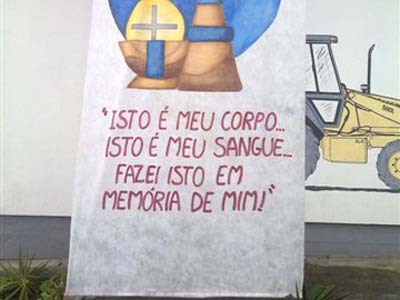 "ISTO É MEU CORPO...
ISTO É MEU SANGUE...
FAZEI ISTO EM
MEMÓRIA DE MIM!"